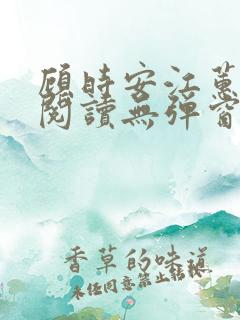 顾時安江蕙
閱讀無彈窗
香草的味道
未经同意禁止转载